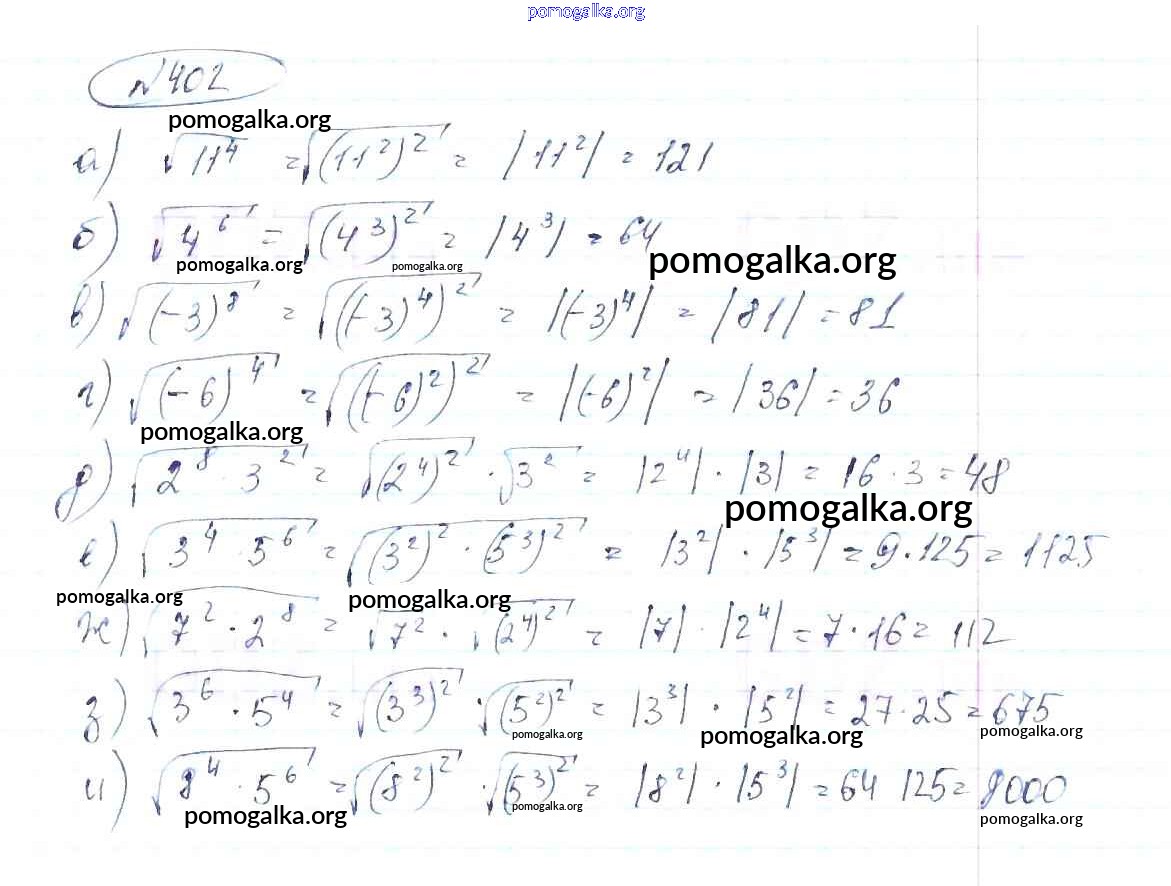 pomogalka.org
№402
pomogalka.org
а) √11⁴ = √(11²)² = |11²| = 121
б) √4⁶ = √(4³)² = |4³| = 64
pomogalka.org pomogalka.org pomogalka.org
в) √(-3)⁸ = √((-3)⁴)² = |(-3)⁴| = |81| = 81
г) √(-6)⁴ = √((-6)²)² = |(-6)²| = |36| = 36
pomogalka.org
д) √2⁸ · 3² = √(2⁴)² · √3² = |2⁴| · |3| = 16 · 3 = 48
pomogalka.org
е) √3⁴ · 5⁶ = √(3²)² · (5³)² = |3²| · |5³| = 9 · 125 = 1125
pomogalka.org pomogalka.org
ж) √7² · 2⁸ = √7² · √(2⁴)² = |7| · |2⁴| = 7 · 16 = 112
з) √3⁶ · 5⁴ = √(3³)² · √(5²)² = |3³| · |5²| = 27 · 25 = 675
pomogalka.org pomogalka.org pomogalka.org
и) √8⁴ · 5⁶ = √(8²)² · √(5³)² = |8²| · |5³| = 64 125 = 8000
pomogalka.org pomogalka.org pomogalka.org